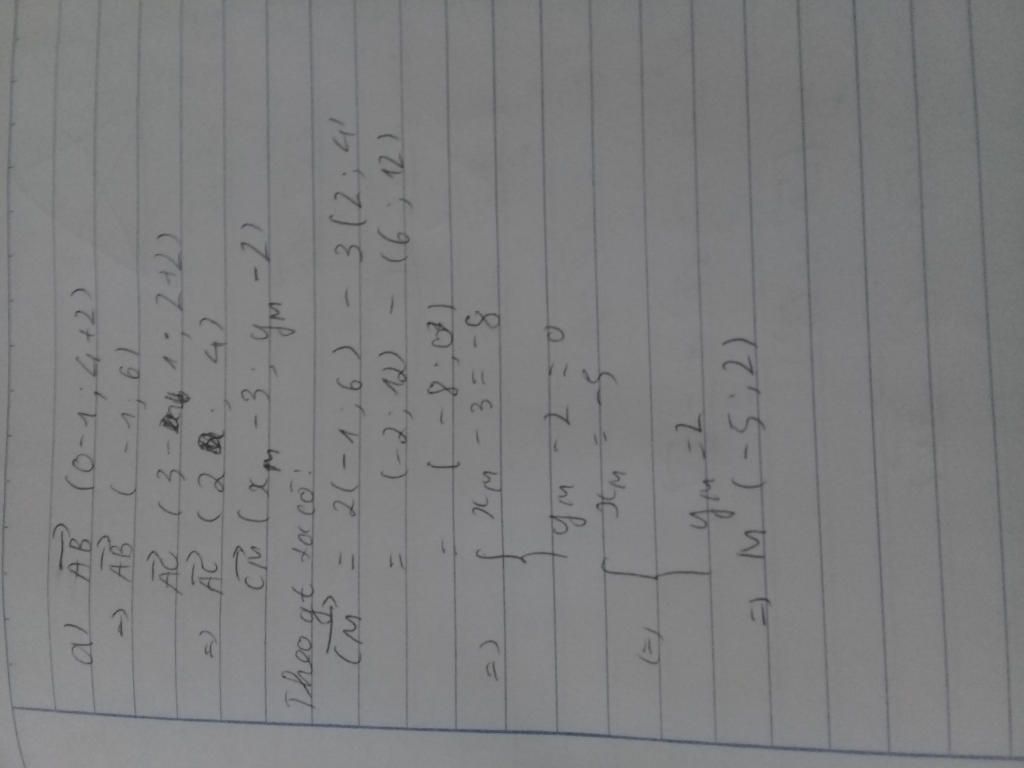 a) AB→ (0-1; 4+2)
=> AB→ (-1; 6)
AC→ (3-1; 2+2)
=> AC→ (2; 4)
CM→ (xM - 3; yM - 2)
Theo gt ta có:
CM→ = 2(-1; 6) - 3(2; 4)
= (-2; 12) - (6; 12)
= (-8; 0)
=> { xM - 3 = -8
yM - 2 = 0
<=> { xM = -5
yM = 2
=> M (-5; 2)